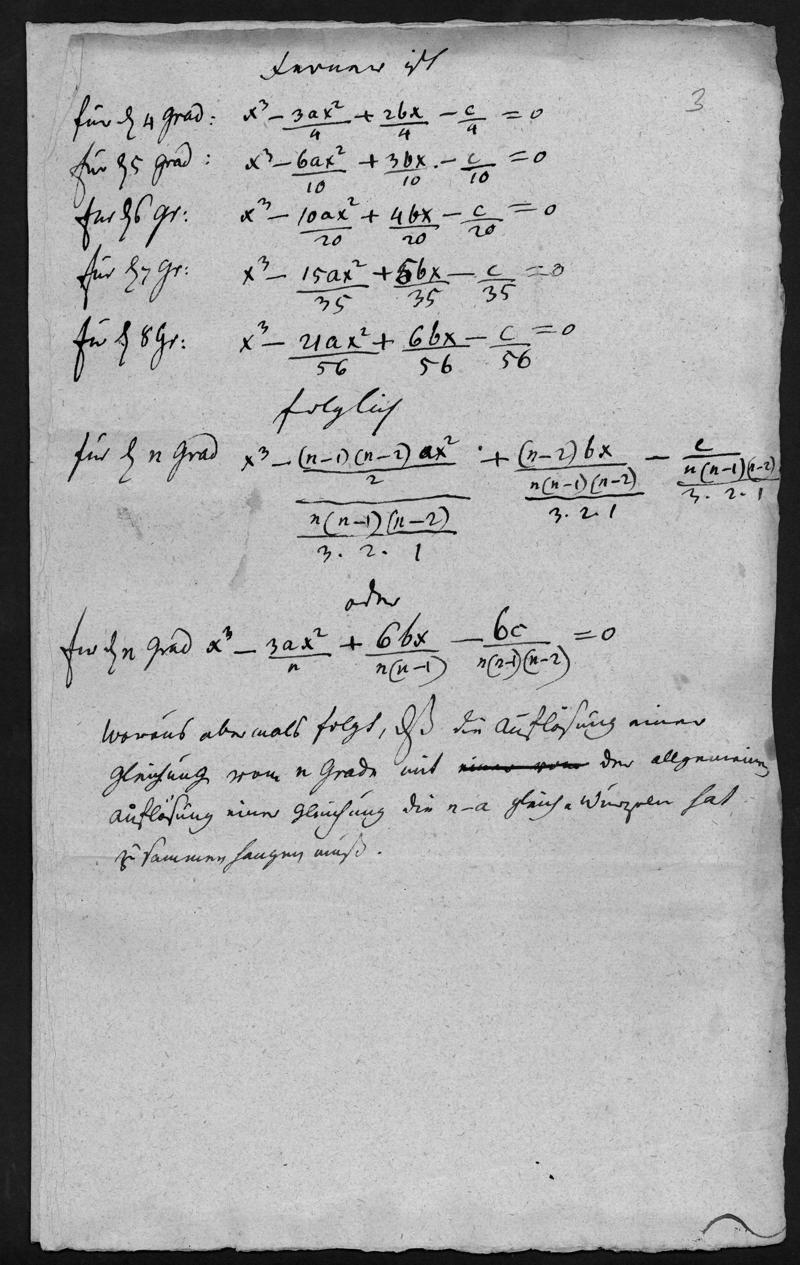 ferner ist
3
für d 4 Grad: x³ − 3ax²/4 + 2bx/4 − c/4 = 0
für d 5 Grad: x³ − 6ax²/10 + 3bx/10 − c/10 = 0
für d 6 Gr: x³ − 10ax²/20 + 4bx/20 − c/20 = 0
für d 7 Gr: x³ − 15ax²/35 + 5bx/35 − c/35 = 0
für d 8 Gr: x³ − 21ax²/56 + 6bx/56 − c/56 = 0
folglich
für d n Grad x³ − ((n−1)(n−2)ax²/2)/(n(n−1)(n−2)/3.2.1) + (n−2)bx/(n(n−1)(n−2)/3.2.1) − c/(n(n−1)(n−2)/3.2.1)
oder
für d n Grad x³ − 3ax²/n + 6bx/n(n−1) − 6c/n(n−1)(n−2) = 0
woraus abermals folgt, dß die Auflösung einer
Gleichung vom n Grade mit der allgemeinen
Auflösung einer Gleichung die n−a gleiche Wurzeln hat
zusammenhangen muß.